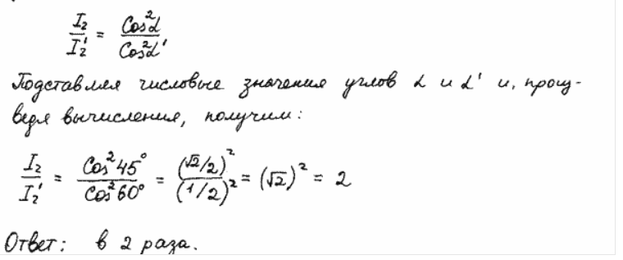 I₂/I₂' = Cos²α/Cos²α'
Подставляя числовые значения углов α и α' и, произ-
ведя вычисления, получим:
I₂/I₂' = Cos²45°/Cos²60° = (√2/2)²/(1/2)² = (√2)² = 2
Ответ: в 2 раза.